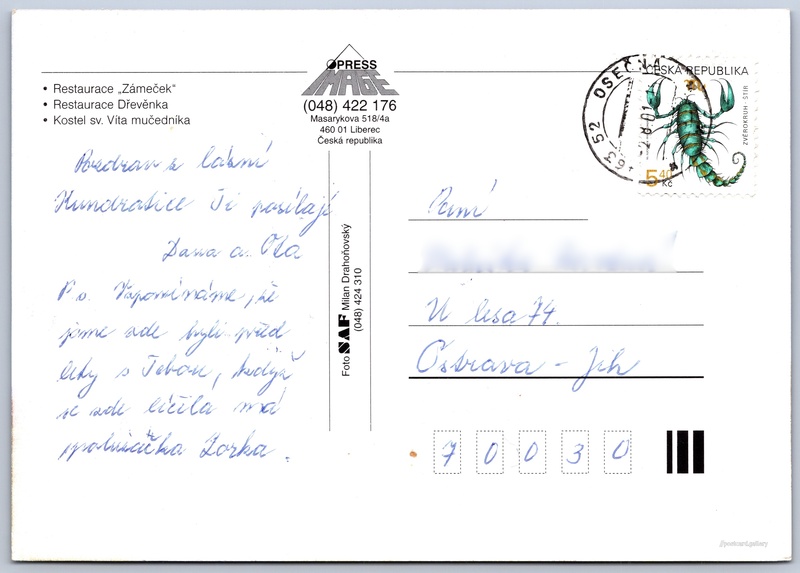 • Restaurace „Zámeček“
• Restaurace Dřevěnka
• Kostel sv. Víta mučedníka
PRESS
IMAGE
(048) 422 176
Masarykova 518/4a
460 01 Liberec
Česká republika
463 52 OSEČNÁ
ČESKÁ REPUBLIKA
ZVĚROKRUH - ŠTÍR
5,40
Kč
Pozdrav z lázní
Kundratice Ti posílají
Dana a Ota
P.s. Vzpomínáme, že
jsme zde byli před
lety s Tebou, když
se zde léčila má
spolužačka Zorka.
Foto SAF Milan Drahoňovský
(048) 424 310
Paní
U lesa 74.
Ostrava - Jih
7 0 0 3 0
postcard.gallery